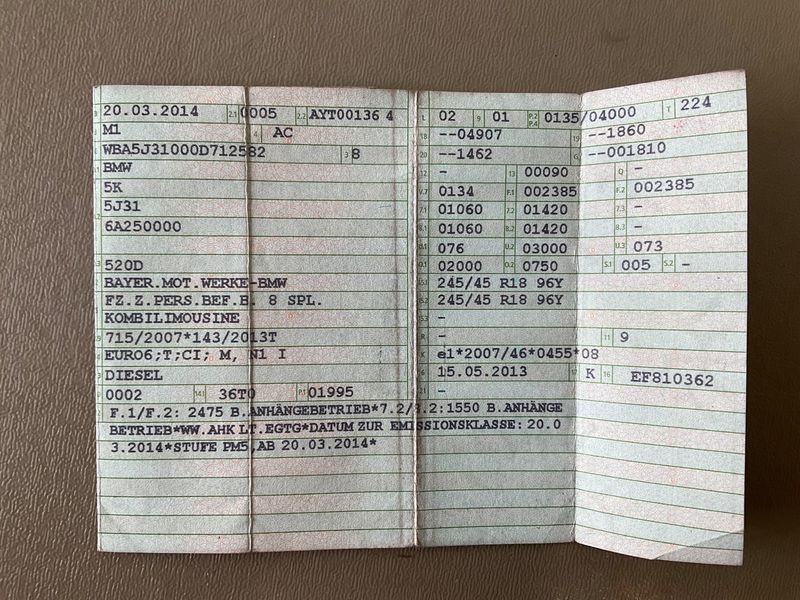 20.03.2014 2.1 0005 2.2 AYT00136 4 L 02 9 01 P.2 P.4 0135/04000 T 224
M1 4 AC 18 --04907 19 --1860
WBA5J31000D712582 3 8 20 --1462 G --001810
BMW 12 - 13 00090 Q -
5K V.7 0134 F.1 002385 F.2 002385
5J31 7.1 01060 7.2 01420 7.3 -
6A250000 8.1 01060 8.2 01420 8.3 -
U.1 076 U.2 03000 U.3 073
520D O.1 02000 O.2 0750 S.1 005 S.2 -
BAYER.MOT.WERKE-BMW 15.1 245/45 R18 96Y
FZ.Z.PERS.BEF.B. 8 SPL. 15.2 245/45 R18 96Y
KOMBILIMOUSINE 15.3 -
715/2007*143/2013T R - 11 9
EURO6;T;CI; M, N1 I K e1*2007/46*0455*08
DIESEL 6 15.05.2013 17 K 16 EF810362
0002 14.1 36T0 P.1 01995 21 -
F.1/F.2: 2475 B.ANHÄNGEBETRIEB*7.2/8.2:1550 B.ANHÄNGE
BETRIEB*WW.AHK LT.EGTG*DATUM ZUR EMISSIONSKLASSE: 20.0
3.2014*STUFE PM5,AB 20.03.2014*